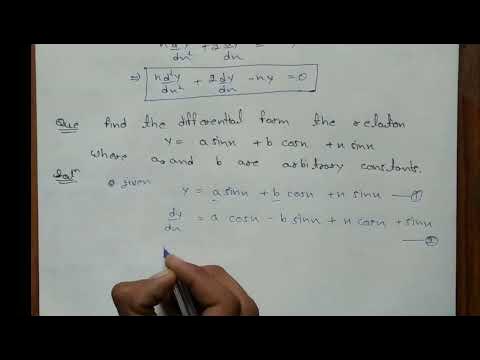 x d²y/dx² + 2 dy/dx =
⇒ x d²y/dx² + 2 dy/dx - xy = 0
Que find the differential form the relation
y = a sinx + b cosx + x sinx
where a and b are arbitrary constants.
Solⁿ given
y = a sinx + b cosx + x sinx —①
dy/dx = a cosx - b sinx + x cosx + sinx
—②